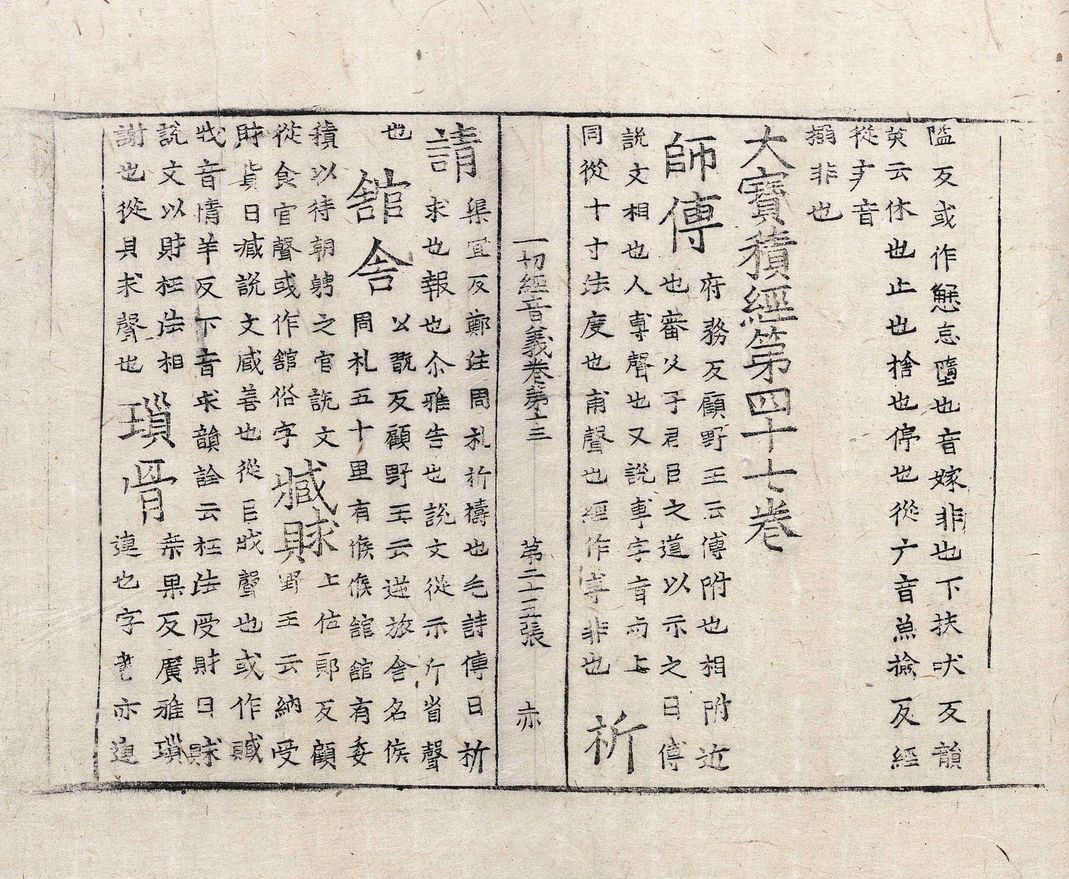 隘反或作懈怠墮也音嫁非也下扶吠反韻
英云休也止也捨也停也從广音魚撿反經
從疒音
搦非也
大寶積經第四十七卷
師傅
府務反顧野王云傅附也相附近
也審父子君臣之道以示之曰傅
說文相也人尃聲也又說尃字音而上
同從十寸法度也甫聲也經作専非也
祈
一切經音義卷第十三 第二十五張 赤
請
渠宜反鄭注周礼祈禱也毛詩傳曰祈
求也報也尒雅告也說文從示斤省聲
也
舘舍
以翫反顧野王云逆旅舍名候
周礼五十里有候候舘舘有委
積以待朝聘之官說文
從食官聲或作舘俗字
贓賕
上位郎反顧
野王云納受
財貨曰贓說文臧善也從臣戕聲也或作贓
戕音情羊反下音求韻詮云枉法受財曰賕
說文以財枉法相
謝也從貝求聲也
瑣骨
桒果反廣雅瑣
連也字書亦連